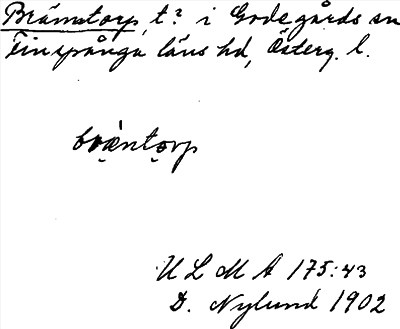 Brämstorp, t? i Godegårds sn
Finspånga läns hd, Österg. l.
bräntorp
U L M A 175:43
D. Nylund 1902